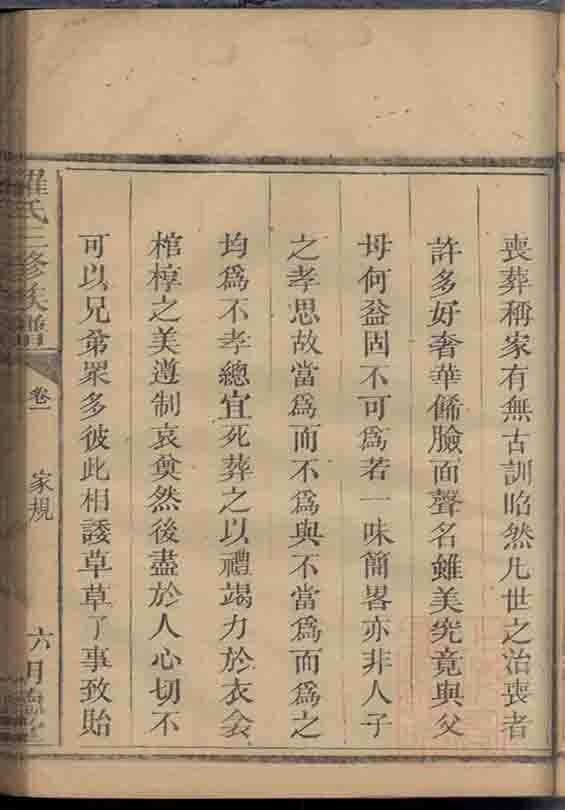 喪葬稱家有無古訓昭然凡世之治喪者
許多好奢華俻臉面聲名雖美究竟與父
母何益固不可爲若一味簡畧亦非人子
之孝思故當爲而不爲與不當爲而爲之
均爲不孝總宜死葬之以禮竭力於衣衾
棺椁之美遵制哀奠然後盡於人心切不
可以兄弟眾多彼此相諉草草了事致貽
羅氏三修族譜
卷一
家規
六月